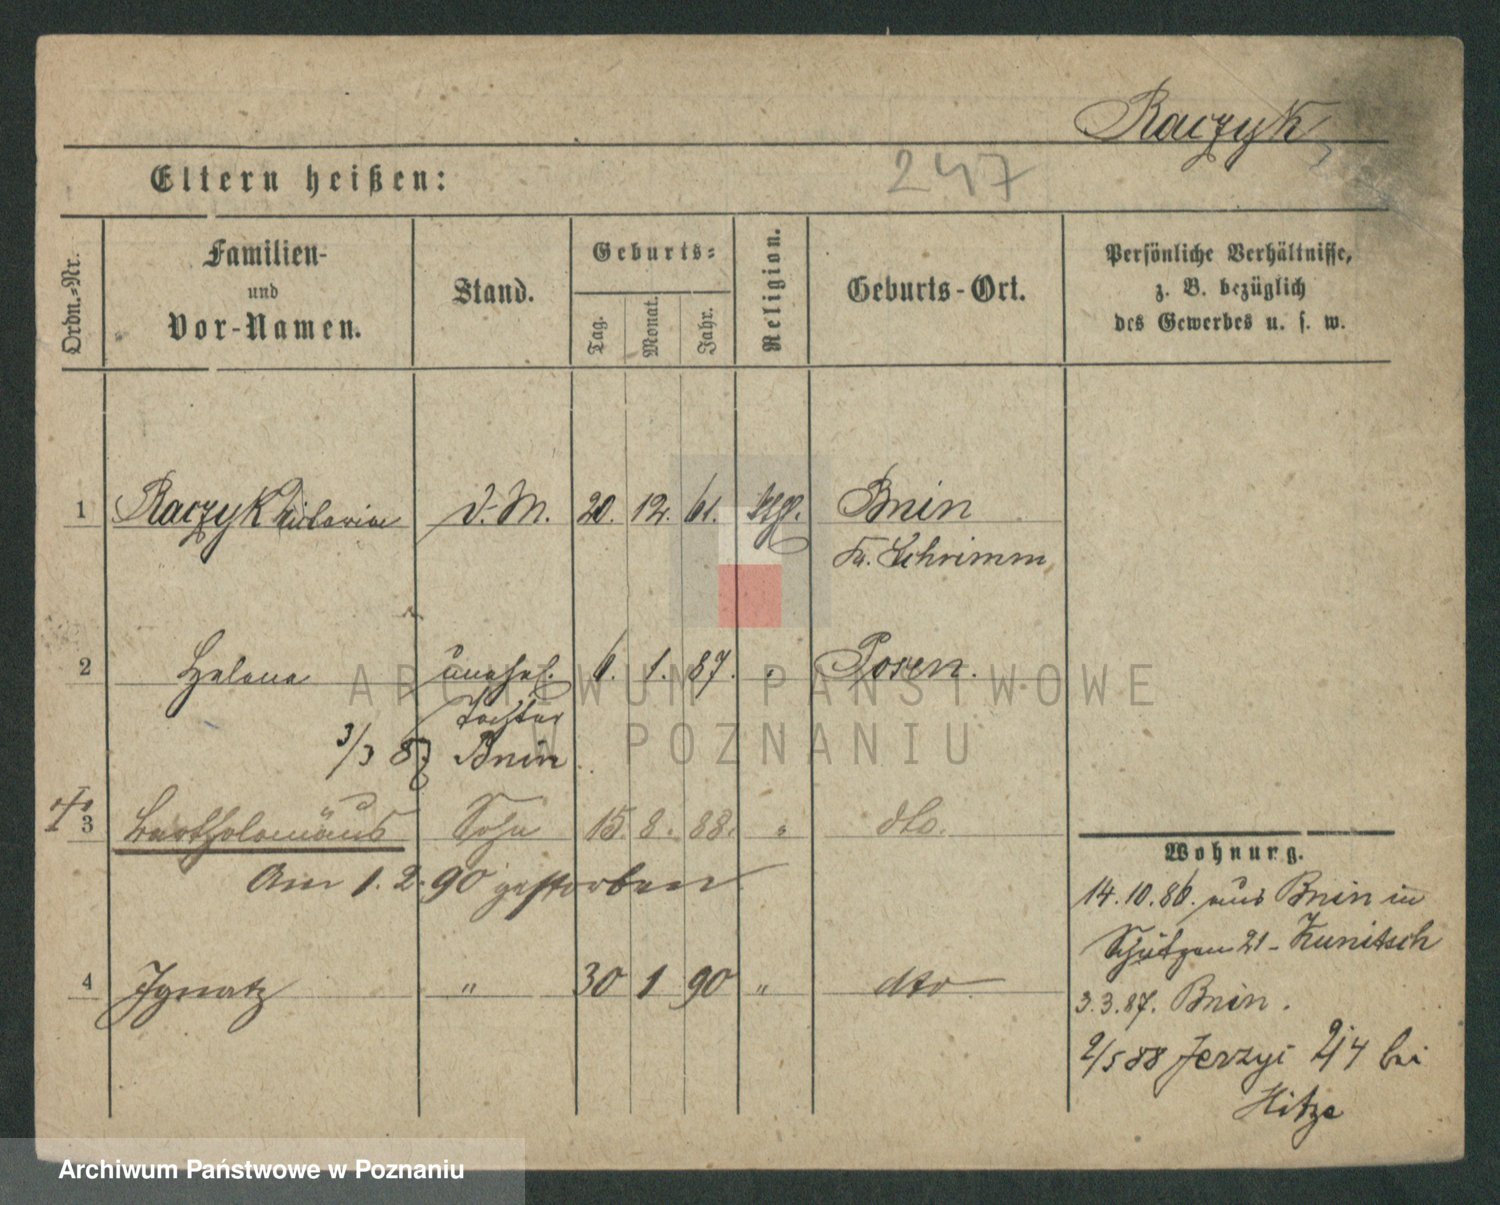 Raczyk
247
Eltern heißen:
Ordn.-Nr.
Familien-
und
Vor-Namen.
Stand.
Geburts-
Tag. Monat. Jahr.
Religion.
Geburts-Ort.
Persönliche Verhältnisse,
z. B. bezüglich
des Gewerbes u. s. w.
1 Raczyk D. M. 20. 12. 61. Bnin
Kr. Schrimm
2 Helena unehel. 6. 1. 87. " Posen.
Tochter
3/3 87 Bnin
3 Bartholomäus Sohn 15. 8. 88. " dto.
Am 1. 2. 90 gestorben
4 Ignatz " 30 1 90 " dto
Wohnung.
14. 10. 86. aus Bnin in
Schützen 21 - Kunitsch
3. 3. 87. Bnin.
2/5 88 Jerzyi 214 bei
Hitze
ARCHIWUM PAŃSTWOWE
W POZNANIU
Archiwum Państwowe w Poznaniu